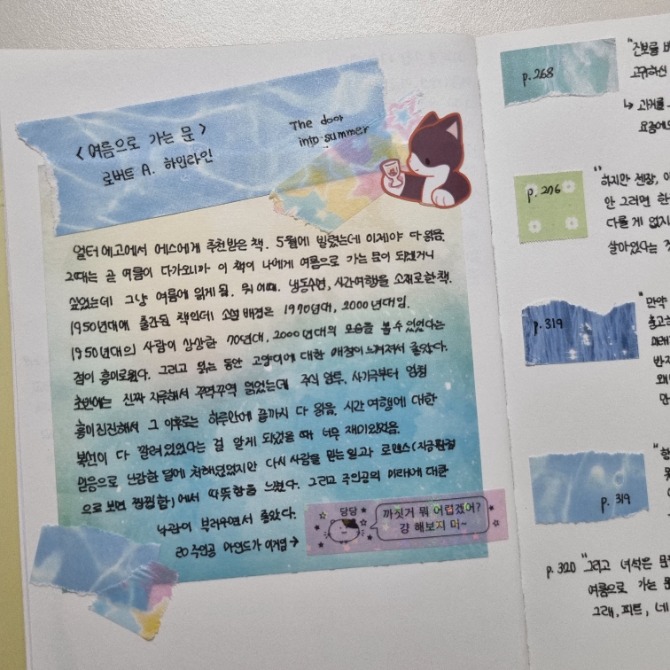 <여름으로 가는 문>
로버트 A. 하인라인
The door
into summer
얼터에고에서 에스에게 추천받은 책. 5월에 빌렸는데 이제야 다 읽음.
그때는 곧 여름이 다가오니까 이 책이 나에게 여름으로 가는 문이 되겠거니
싶었는데 그냥 여름에 읽게 됨. 뭐 어때. 냉동수면, 시간여행을 소재로 한 책.
1950년대에 출간된 책인데 소설 배경은 1970년대, 2000년대임.
1950년대의 사람이 상상한 70년대, 2000년대의 모습을 볼 수 있었다는
점이 흥미로웠다. 그리고 읽는 동안 고양이에 대한 애정이 느껴져서 좋았다.
초반에는 진짜 지루해서 꾸역꾸역 읽었는데 주식 양도, 사기극부터 엄청
흥미진진해서 그 이후로는 하루만에 끝까지 다 읽음. 시간여행에 대한
복선이 다 깔려있었다는 걸 알게 되었을 때 너무 재미있었음.
믿음으로 난감한 일에 처해졌었지만 다시 사람을 믿는 일과 로맨스(지금 관점
으로 보면 찜찜함)에서 따뜻함을 느꼈다. 그리고 주인공의 미래에 대한
낙관이 부러우면서 좋았다.
주인공 마인드가 이거임 →
당당
까짓거 뭐 어렵겠어?
걍 해보지 머~
p.268
p.276
"하지만 젠장,
안 그러면
다를 게 없지
살아있다는
p.319
"만약
p.319
p.320 "그리고 녀석은
여름으로 가는
그래, 피트,